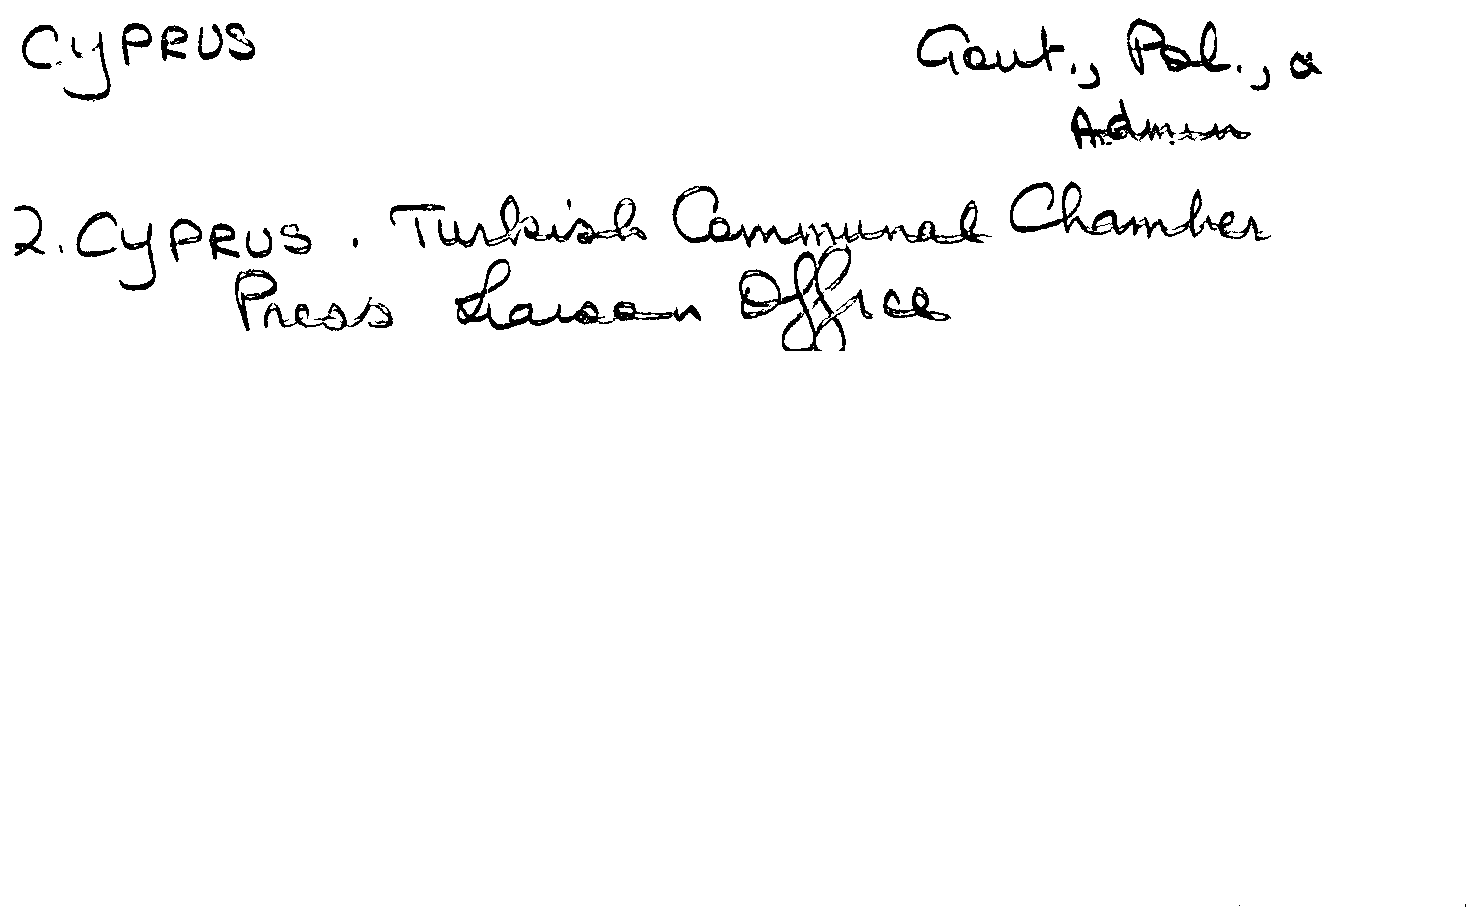 CYPRUS Govt., Pol., &
Admin
2. CYPRUS. Turkish Communal Chamber
Press Liaison Office